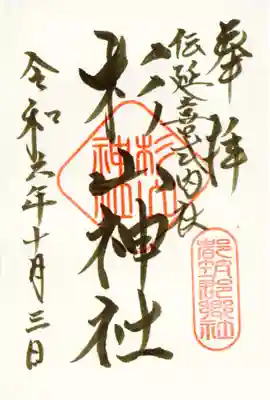 奉拝
伝延喜式内社
杉山神社
令和六年十月三日
杉山
神社